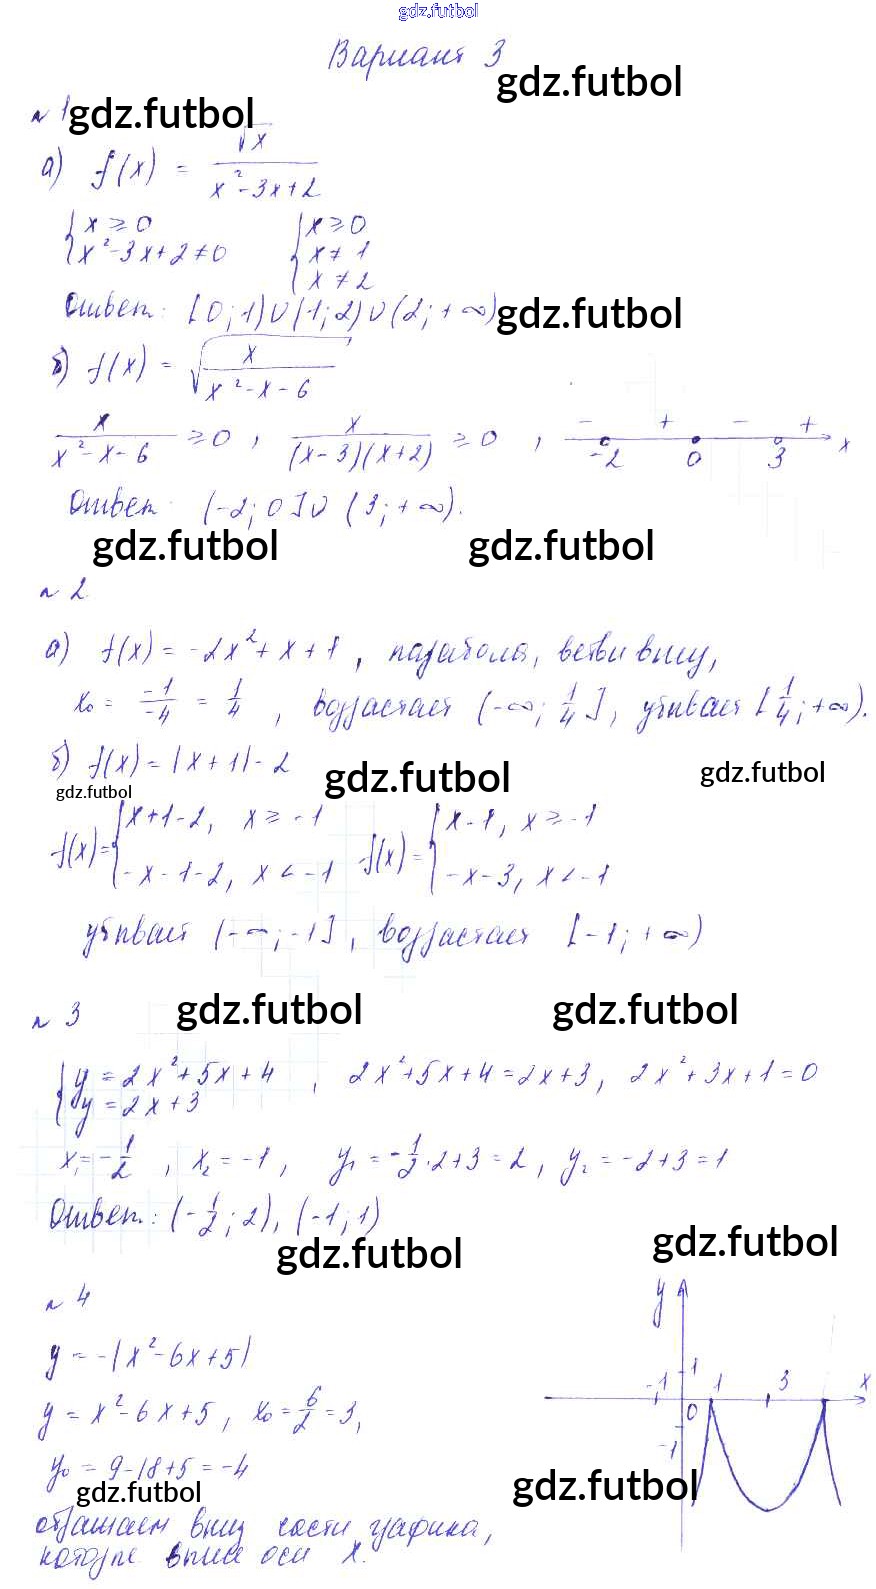 gdz.futbol
Вариант 3
gdz.futbol
№ 1 gdz.futbol
а) f(x) = √x / (x² - 3x + 2)
{ x ≥ 0
x² - 3x + 2 ≠ 0
{ x ≥ 0
x ≠ 1
x ≠ 2
Ответ: [0; 1) ∪ (1; 2) ∪ (2; +∞) gdz.futbol
б) f(x) = √(x / (x² - x - 6)) ,
x / (x² - x - 6) ≥ 0 , x / ((x - 3)(x + 2)) ≥ 0 , - + - + x
-2 0 3
Ответ: (-2; 0] ∪ (3; +∞).
gdz.futbol gdz.futbol
№ 2
а) f(x) = -2x² + x + 1 , парабола, ветви вниз,
x₀ = -1/-4 = 1/4 , возрастает (-∞; 1/4], убывает [1/4; +∞).
б) f(x) = |x + 1| - 2 gdz.futbol gdz.futbol
gdz.futbol
f(x) = { x + 1 - 2, x ≥ -1
-x - 1 - 2, x < -1
f(x) = { x - 1, x ≥ -1
-x - 3, x < -1
убывает (-∞; -1], возрастает [-1; +∞)
gdz.futbol gdz.futbol
№ 3
{ y = 2x² + 5x + 4 , 2x² + 5x + 4 = 2x + 3, 2x² + 3x + 1 = 0
y = 2x + 3
x₁ = -1/2 , x₂ = -1 , y₁ = -1/2 · 2 + 3 = 2, y₂ = -2 + 3 = 1
Ответ: (-1/2; 2), (-1; 1)
gdz.futbol gdz.futbol
№ 4
y = -|x² - 6x + 5|
y = x² - 6x + 5, x₀ = 6/2 = 3,
y₀ = 9 - 18 + 5 = -4
gdz.futbol
отражаем вниз части графика,
которые выше оси x.
y
1
-1 1 3 x
0
-1
gdz.futbol